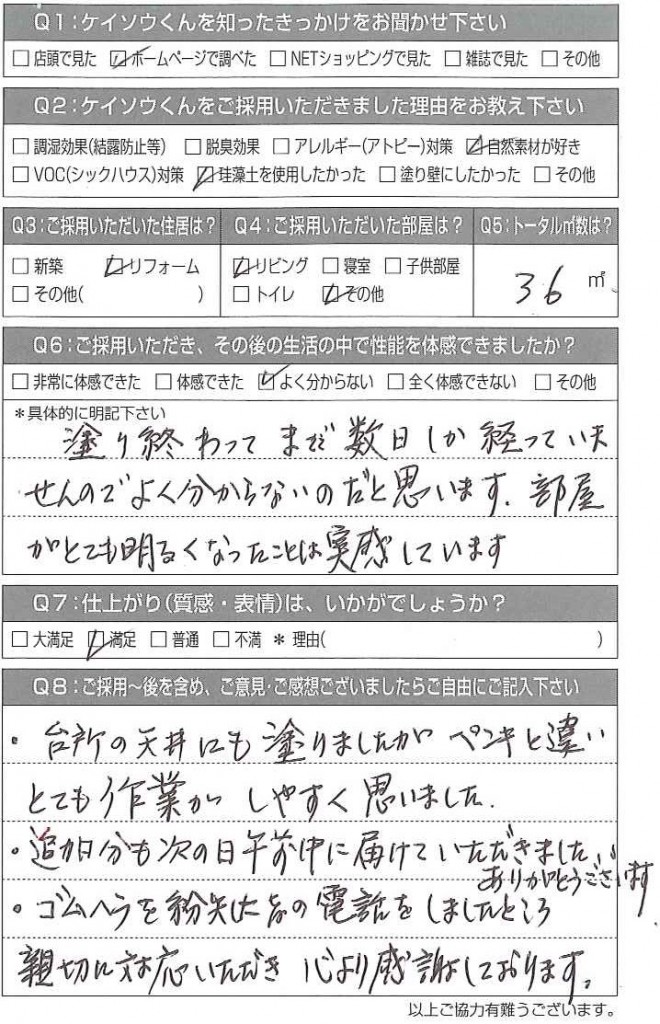 Q1：ケイソウくんを知ったきっかけをお聞かせ下さい
□店頭で見た ☑ホームページで調べた □NETショッピングで見た □雑誌で見た □その他
Q2：ケイソウくんをご採用いただきました理由をお教え下さい
□調湿効果(結露防止等) □脱臭効果 □アレルギー(アトピー)対策 ☑自然素材が好き
□VOC(シックハウス)対策 ☑珪藻土を使用したかった □塗り壁にしたかった □その他
Q3：ご採用いただいた住居は？ Q4：ご採用いただいた部屋は？ Q5：トータル㎡数は？
□新築 ☑リフォーム ☑リビング □寝室 □子供部屋 36 ㎡
□その他( ) □トイレ ☑その他
Q6：ご採用いただき、その後の生活の中で性能を体感できましたか？
□非常に体感できた □体感できた ☑よく分からない □全く体感できない □その他
＊具体的に明記下さい
塗り終わってまだ数日しか経っていま
せんのでよく分からないのだと思います．部屋
がとても明るくなったことは実感しています
Q7：仕上がり(質感・表情)は、いかがでしょうか？
□大満足 ☑満足 □普通 □不満 ＊理由( )
Q8：ご採用～後を含め、ご意見・ご感想ございましたらご自由にご記入下さい
・台所の天井にも塗りましたがペンキと違い
とても作業がしやすく思いました．
・追加分も次の日午前中に届けていただきました
ありがとうございます
・ゴムヘラを紛失した の電話をしましたところ
親切に対応いただき心より感謝しております。
以上ご協力有難うございます。